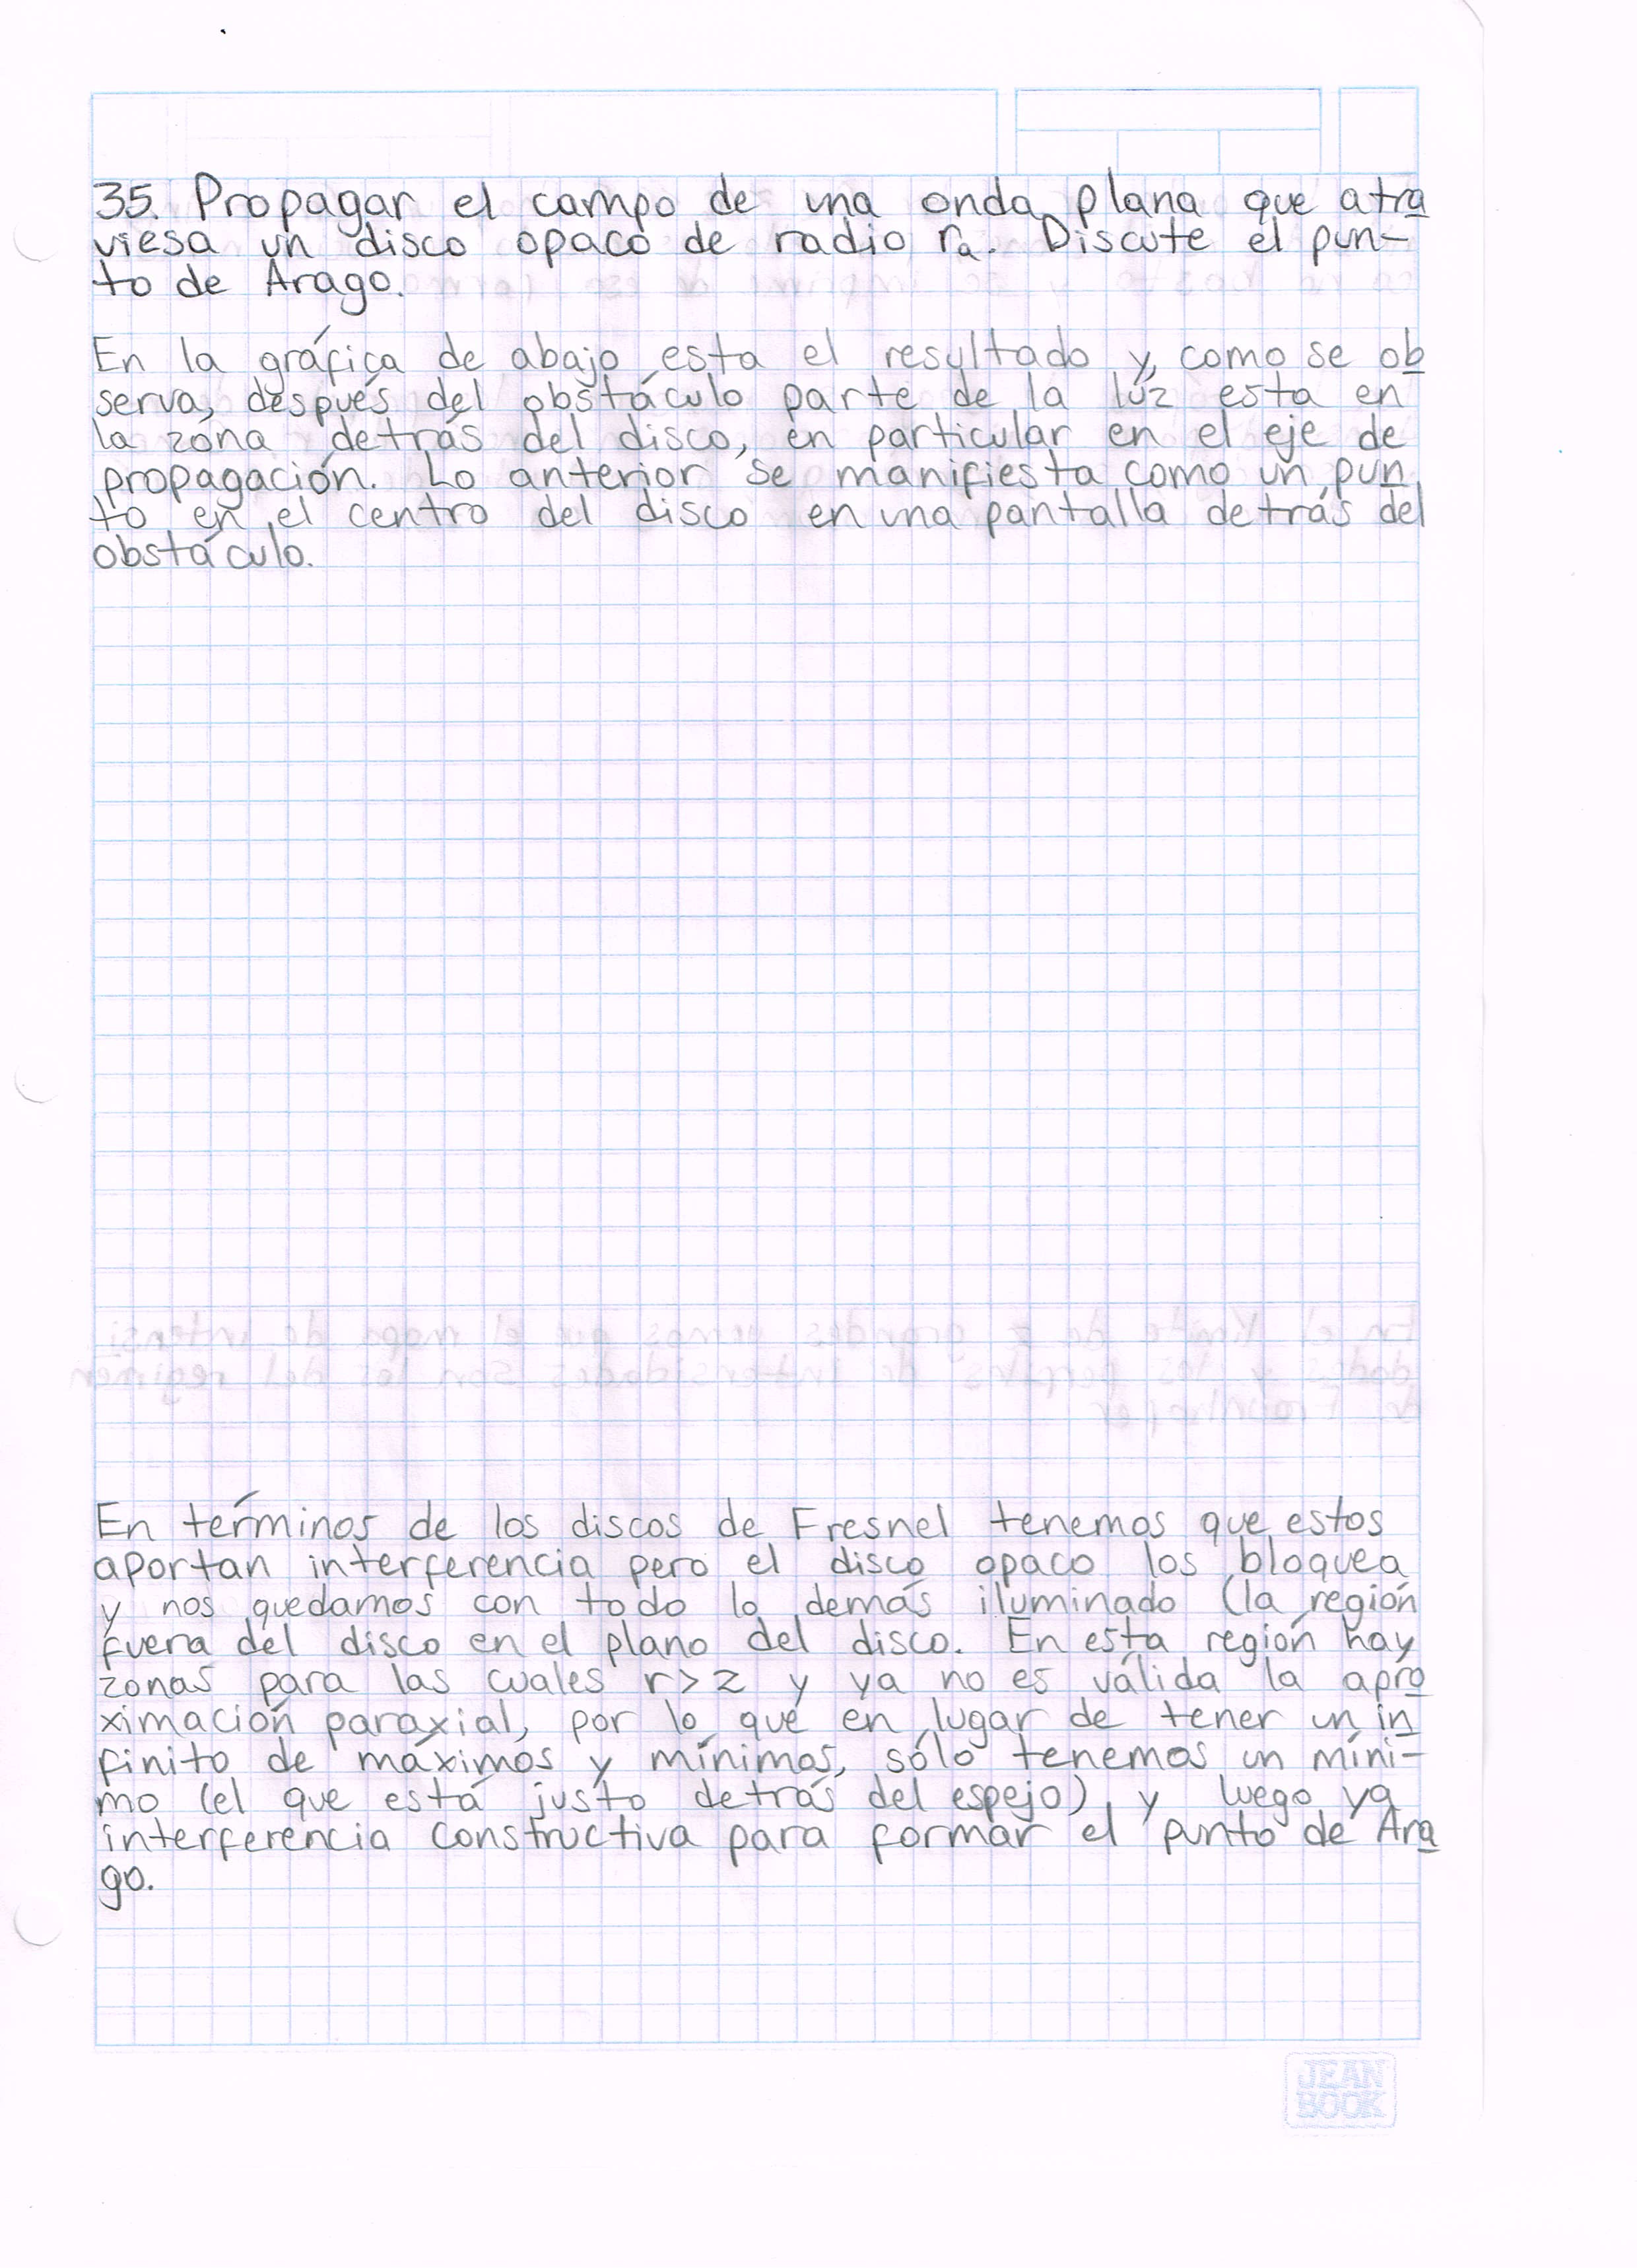 35. Propagar el campo de una onda plana que atra
viesa un disco opaco de radio ra. Discute el pun-
to de Arago.
En la gráfica de abajo esta el resultado y, como se ob
serva, después del obstáculo parte de la luz esta en
la zona detrás del disco, en particular en el eje de
propagación. Lo anterior se manifiesta como un pun
to en el centro del disco en una pantalla detrás del
obstáculo.
En el límite de z grandes vemos que el mapa de intensi
dades y los perfiles de intensidades son los del regimen
de Fraunhofer
En términos de los discos de Fresnel tenemos que estos
aportan interferencia pero el disco opaco los bloquea
y nos quedamos con todo lo demás iluminado (la región
fuera del disco en el plano del disco. En esta región hay
zonas para las cuales r>z y ya no es válida la apro
ximación paraxial, por lo que en lugar de tener un in
finito de máximos y mínimos, sólo tenemos un míni-
mo (el que está justo detrás del espejo) y luego ya
interferencia constructiva para formar el punto de Ara
go.
JEAN
BOOK